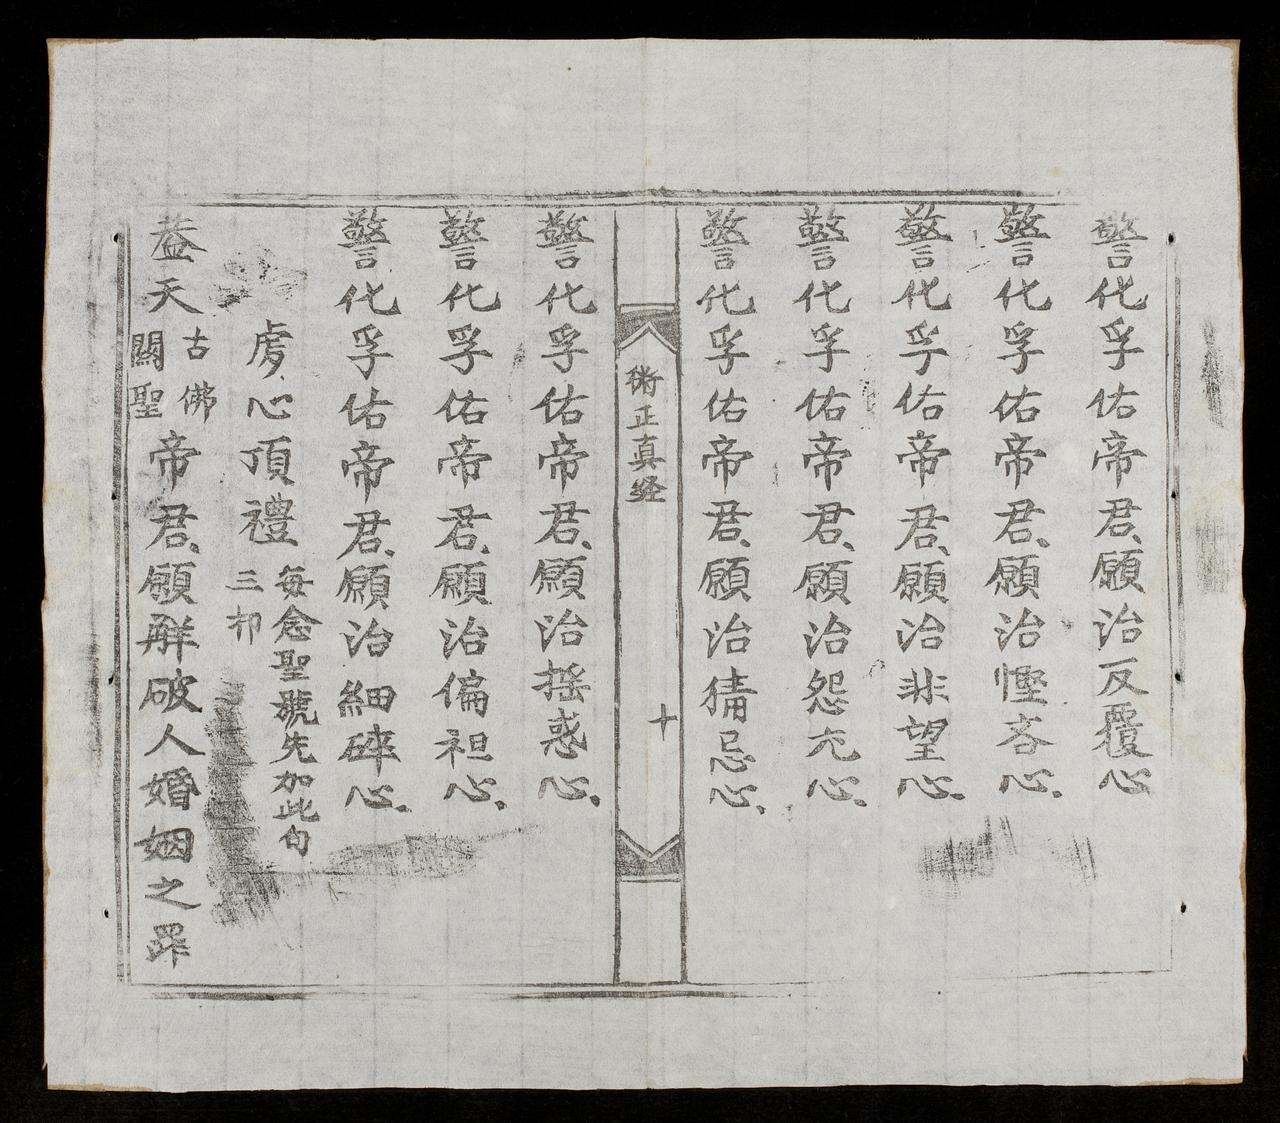 警化孚佑帝君、願治反覆心
警化孚佑帝君、願治慳吝心、
警化孚佑帝君、願治非望心、
警化孚佑帝君、願治怨亢心、
警化孚佑帝君、願治猜忌心、
衛正真経
十
警化孚佑帝君、願治揺惑心、
警化孚佑帝君、願治偏袒心、
警化孚佑帝君、願治細碎心、
虔心頂禮 每念聖號先加此句
三叩
蓋天古佛
關聖帝君、願觧破人婚姻之罪